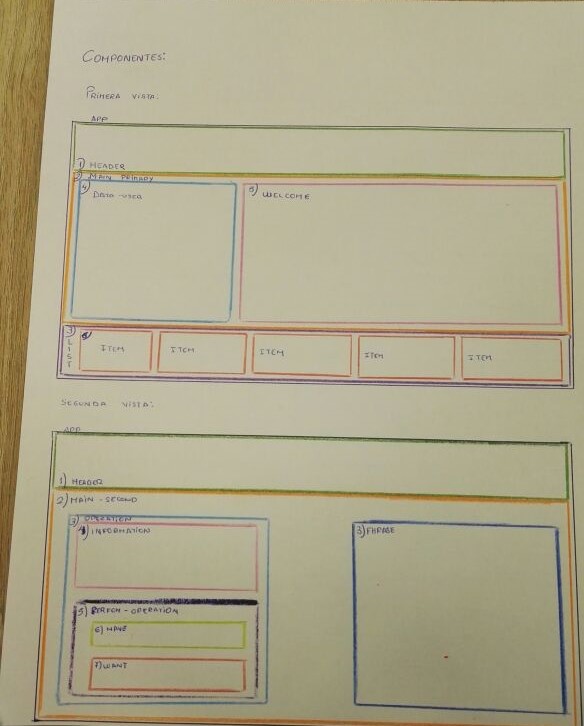 COMPONENTES:
PRIMERA VISTA:
APP
1) HEADER
2) MAIN PRIMARY
4) DATA-USER
5) WELCOME
3) LIST
ITEM
ITEM
ITEM
ITEM
ITEM
SEGUNDA VISTA:
APP
1) HEADER
2) MAIN - SECOND
3) OPERATION
4) INFORMATION
3) FHRASE
5) - OPERATION
6)
7) WANT